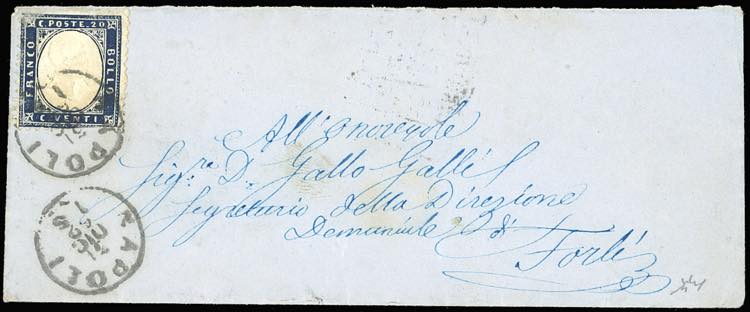 C. POSTE. 20
FRANCO
BOLLO
C. VENTI
POLI
NAPOLI
All'Onorevole
Sig.re D. Gallo Galli
Segretario della Direzione
Demaniale di
Forlì